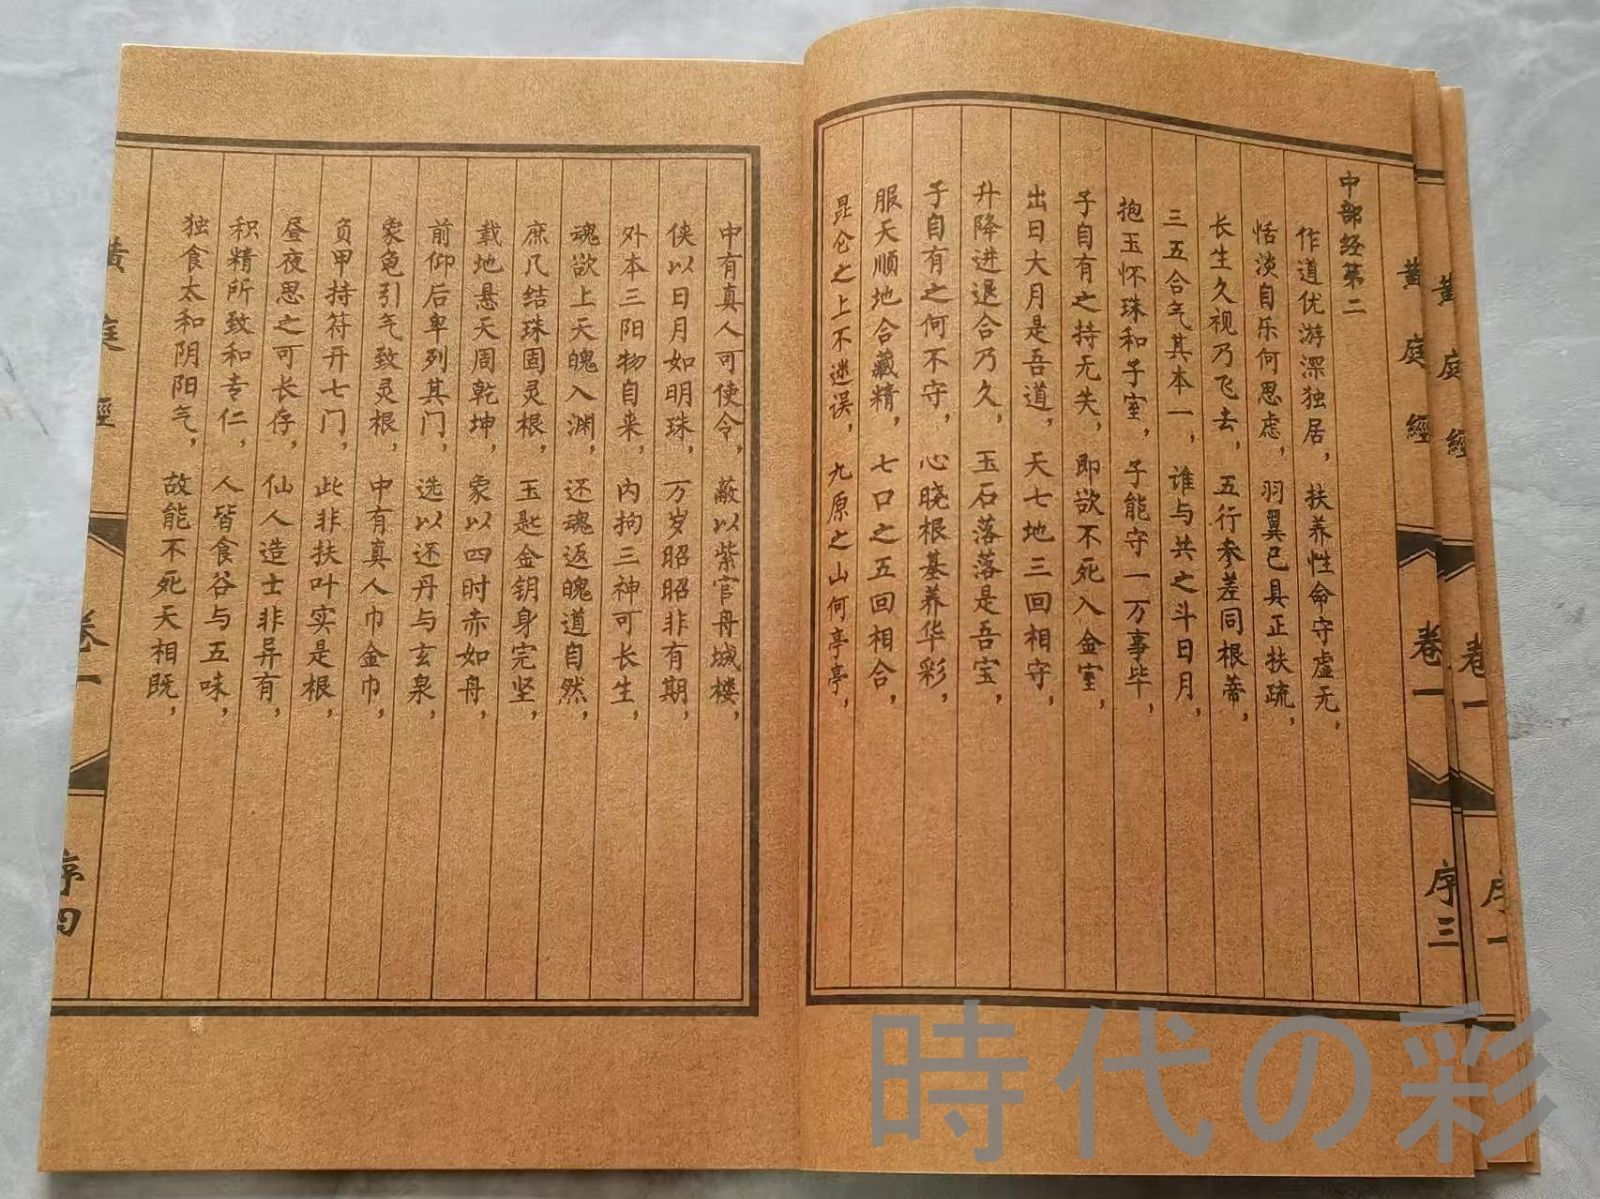 中部经第二
作道优游深独居，扶养性命守虚无，
恬淡自乐何思虑，羽翼已具正扶疏，
长生久视乃飞去，五行参差同根蒂，
三五合气其本一，谁与共之斗日月，
抱玉怀珠和子室，子能守一万事毕，
子自有之持无失，即欲不死入金室，
出日大月是吾道，天七地三回相守，
升降进退合乃久，玉石落落是吾宝，
子自有之何不守，心晓根基养华彩，
服天顺地合藏精，七口之五回相合，
昆仑之上不迷误，九原之山何亭亭，
中有真人可使令，蔽以紫官舟城楼，
侠以日月如明珠，万岁昭昭非有期，
外本三阳物自来，内拘三神可长生，
魂欲上天魄入渊，还魂返魄道自然，
庶几结珠固灵根，玉匙金钥身完坚，
载地悬天周乾坤，象以四时赤如舟，
前仰后卑列其门，选以还丹与玄泉，
象龟引气致灵根，中有真人巾金巾，
负甲持符开七门，此非扶叶实是根，
昼夜思之可长存，仙人造士非异有，
积精所致和专仁，人皆食谷与五味，
独食太和阴阳气，故能不死天相既，
黄庭經 卷一 序三
黄庭經 卷一 序一
黄庭經 卷一 序四
時代の彩